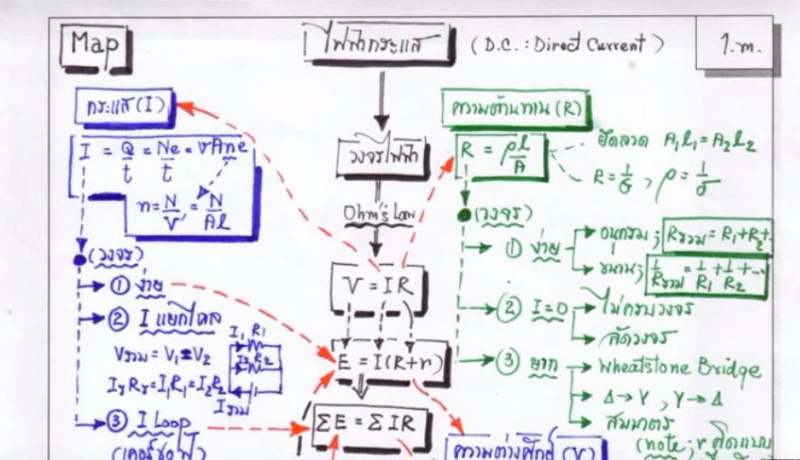 Map
ไฟฟ้ากระแส
(D.C. : Direct Current)
1.ท.
กระแส(I)
I = Q/t = Ne/t = vAne
n = N/V' = N/Al
(วงจร)
① ง่าย
② I แยกไหล
Vรวม = V₁ = V₂
I₁ R₁
I₂ R₂
Iรวม
③ I Loop
วงจรไฟฟ้า
Ohm's Law
V = IR
E = I(R+r)
ΣE = ΣIR
ความต้านทาน(R)
R = ρl/A
ยืดลวด A₁l₁ = A₂l₂
R = 1/G , ρ = 1/σ
(วงจร)
① ง่าย
อนุกรม ; Rรวม = R₁+R₂+..
ขนาน ; 1/Rรวม = 1/R₁ + 1/R₂ + ...
② I=0
ไม่ครบวงจร
ลัดวงจร
③ ยาก
Wheatstone Bridge
Δ→Y , Y→Δ
สมมาตร
ความต่างศักย์(V)
(note;